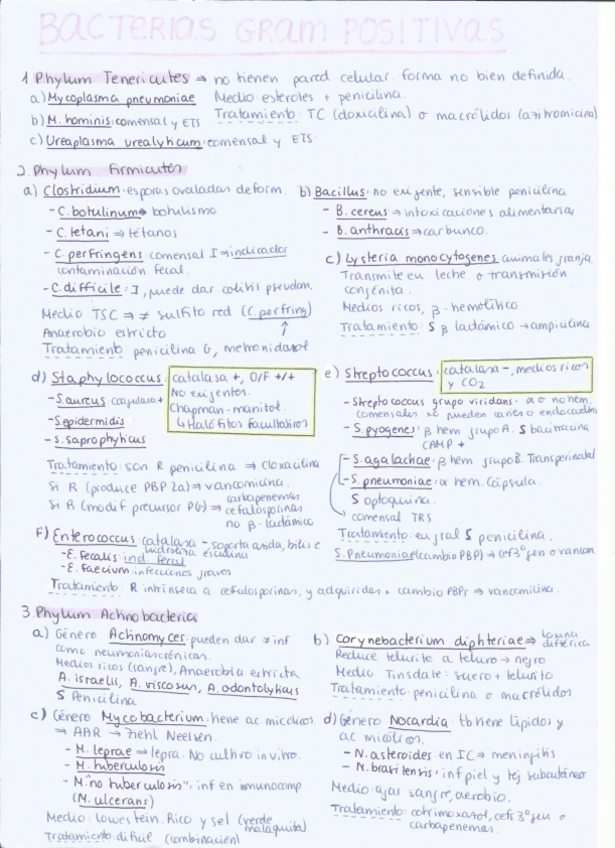 BACTERIAS GRAM POSITIVAS
1 Phylum Tenericutes ⇒ no tienen pared celular. forma no bien definida.
a) Mycoplasma pneumoniae Medio esteroles + penicilina.
b) M. hominis: comensal y ETS Tratamiento: TC (doxicilina) o macrólidos (azitromicina)
c) Ureaplasma urealyticum: comensal y ETS
2. Phylum Firmicutes
a) Clostridium: esporas ovaladas deform.
- C. botulinum ⇒ botulismo
- C. tetani ⇒ tétanos
- C. perfringens: comensal I ⇒ indicador
contaminación fecal.
- C. difficile: I, puede dar colitis pseudom.
Medio TSC ⇒ ≠ sulfito red (C. perfring)
Anaerobio estricto
Tratamiento: penicilina G, metronidazol
b) Bacillus: no exigente, sensible penicilina
- B. cereus ⇒ intoxicaciones alimentarias
- B. anthracis ⇒ carbunco.
c) Lysteria monocytogenes animales granja.
Transmite en leche o transmisión
congénita.
Medios ricos, β-hemolítico.
Tratamiento: S β lactámico → ampicilina
d) Staphylococcus: catalasa +, O/F +/+
No exigentes.
Chapman-manitol.
↳ Halófitos facultativos
- S. aureus: coagulasa +
- S. epidermidis
- S. saprophyticus
Tratamiento: son R penicilina ⇒ cloxacilina
Si R (produce PBP 2a) ⇒ vancomicina.
Si R (modif precursor PG) ⇒ carbapenemas
cefalosporinas
no β-lactámico
e) Streptococcus: catalasa -, medios ricos
y CO2
- Streptococcus grupo viridans: α o no hem.
comensales pueden caries o endocarditis
- S. pyogenes: β hem grupo A. S bacitracina
CAMP +
- S. agalachae: β hem grupo B. Transperinatal
- S. pneumoniae: α hem. Cápsula.
S optoquina.
comensal TRS
Tratamiento: en gral S penicilina.
S. Pneumoniae (cambio PBP) → cef 3º gen o vancom
F) Enterococcus catalasa - soporta azida, bilis e
hidroliza esculina
- E. Fecalis: ind. fecal
- E. Faecium: infecciones graves
Tratamiento: R intrínseca a cefalosporinas, y adquiridas = cambio PBPs ⇒ vancomilina.
3. Phylum Achnobacteria
a) Género Achinomyces: pueden dar ≠ inf
como neumonías crónicas.
Medios ricos (sangre), Anaerobia estricta
A. israelis, A. viscosun, A. odontolyticus
S Penicilina
b) Corynebacterium diphteriae ⇒ toxina
diftérica
Reduce telurito a teluro → negro
Medio Tinsdate: suero + telurito
Tratamiento: penicilina o macrólidos
c) Género Mycobacterium: tiene ac. micólicos
⇒ AAR → Ziehl Neelsen.
- M. leprae ⇒ lepra. No cultivo in vitro.
- M. tuberculosis
- M. "no tuberculosis": inf en inmunocomp
(M. ulcerans)
Medio: lowestein. Rico y sel (verde
malaquita)
Tratamiento: difícil (combinación)
d) Género Nocardia: tb tiene lípidos y
ac micólicos.
- N. asteroides: en IC ⇒ meningitis
- N. brasilensis: inf piel y tej subcutáneo
Medio agar sangre, aerobio.
Tratamiento: cotrimoxazol, cefs 3º gen o
carbapenemas.